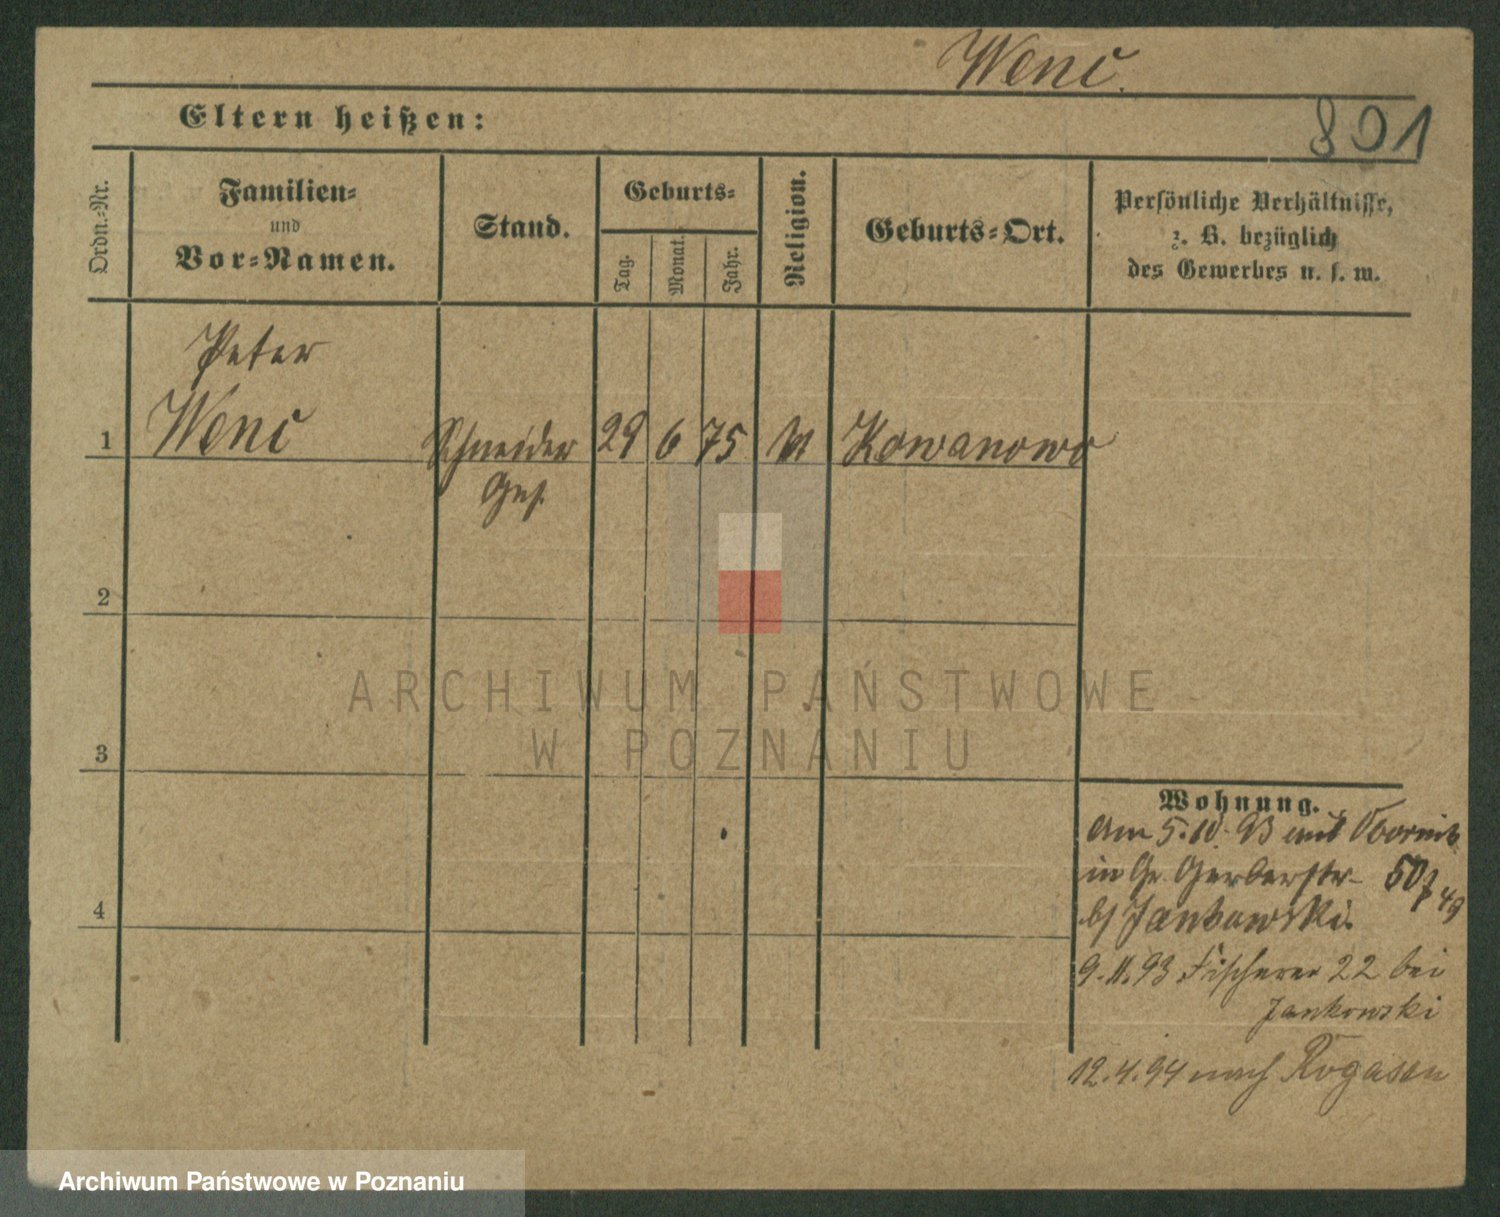 Wenc.
Eltern heißen:
801
Ordn.-Nr.
Familien-
und
Vor-Namen.
Stand.
Geburts-
Tag.
Monat.
Jahr.
Religion.
Geburts-Ort.
Persönliche Verhältnisse,
z. B. bezüglich
des Gewerbes u. s. w.
Peter
1 Wenc Schneider 29 6 75 Kowanowo
Ges.
2
ARCHIWUM PAŃSTWOWE
W POZNANIU
3
Wohnung.
Am 5.10.93 aus Obornik
in Gr. Gerberstr. 50 49
b/ Jankowski.
9.11.93 Fischerei 22 bei
Jankowski
4
12.4.94 nach Rogasen
Archiwum Państwowe w Poznaniu